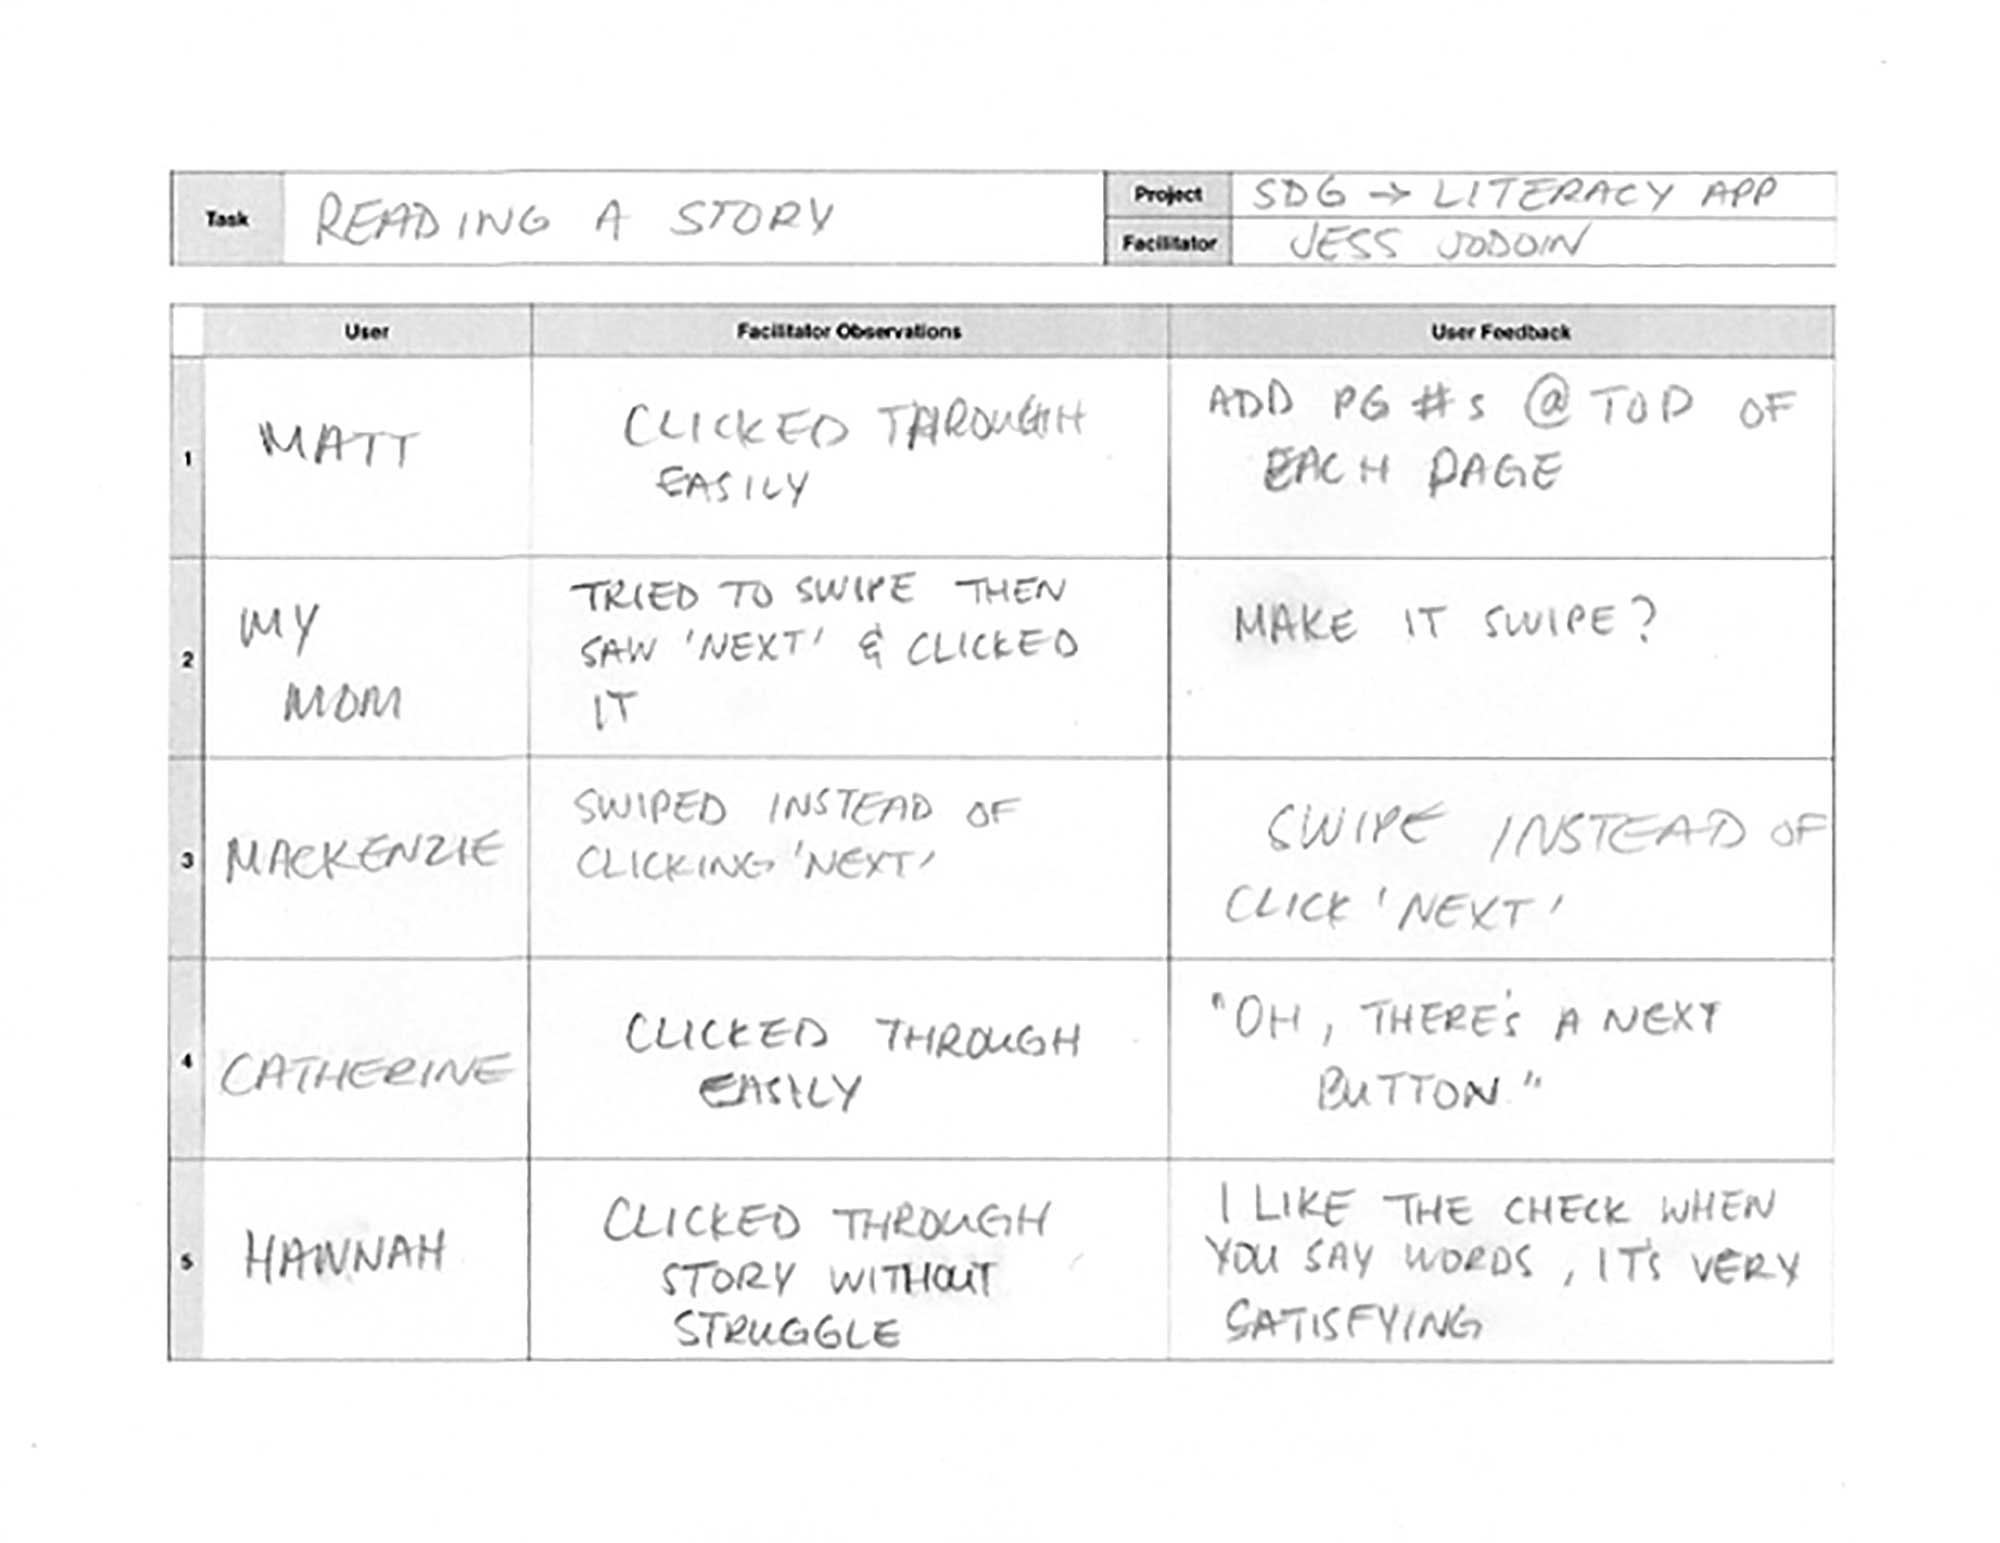 Task
READING A STORY
Project
SDG → LITERACY APP
Facilitator
JESS JODOIN
User
Facilitator Observations
User Feedback
1
MATT
CLICKED THROUGH
EASILY
ADD PG #s @ TOP OF
EACH PAGE
2
MY
MOM
TRIED TO SWIPE THEN
SAW 'NEXT' & CLICKED
IT
MAKE IT SWIPE?
3
MACKENZIE
SWIPED INSTEAD OF
CLICKING 'NEXT'
SWIPE INSTEAD OF
CLICK 'NEXT'
4
CATHERINE
CLICKED THROUGH
EASILY
"OH, THERE'S A NEXT
BUTTON."
5
HANNAH
CLICKED THROUGH
STORY WITHOUT
STRUGGLE
I LIKE THE CHECK WHEN
YOU SAY WORDS, IT'S VERY
SATISFYING